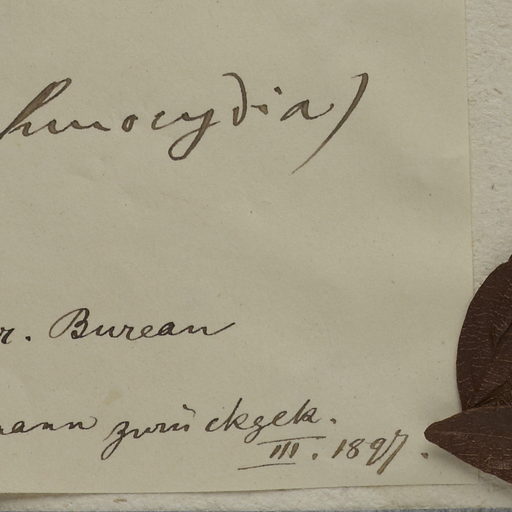 hmocydia)
r. Bureau
mann zurückgek.
III. 1897.